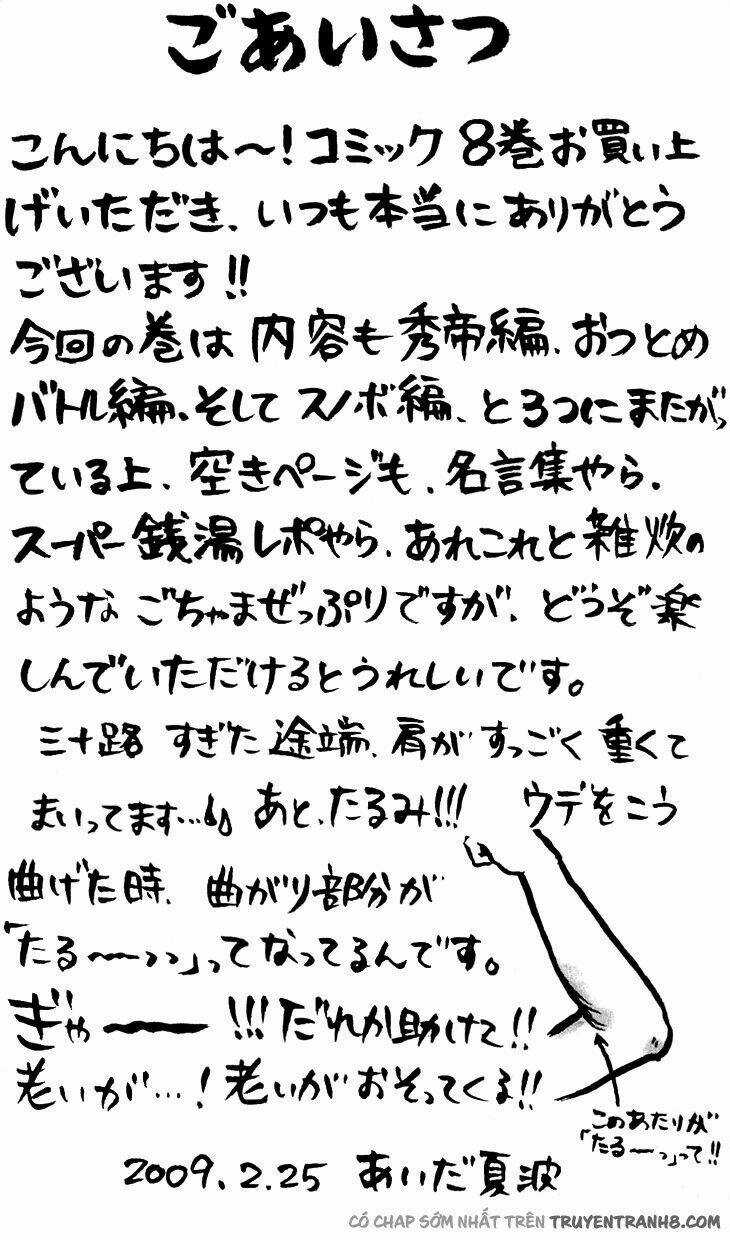 ごあいさつ
こんにちは〜!コミック8巻お買い上
げいただき、いつも本当にありがとう
ございます!!
今回の巻は内容も秀帝編、おつとめ
バトル編、そしてスノボ編、と3つにまたがっ
ている上、空きページも、名言集やら、
スーパー銭湯レポやら、あれこれと雑炊の
ようなごちゃまぜっぷりですが、どうぞ楽
しんでいただけるとうれしいです。
三十路すぎた途端、肩がすっごく重くて
まいってます…あと、たるみ!!!ウデをこう
曲げた時、曲がり部分が
「たる〜〜っっ」ってなってるんです。
ぎゃーーー!!!だれか助けて!!
老いが…!老いがおそってくる!!
このあたりが
「たる〜〜っ」って!!
2009.2.25 あいだ夏波
CÓ CHAP SỚM NHẤT TRÊN TRUYENTRANH8.COM